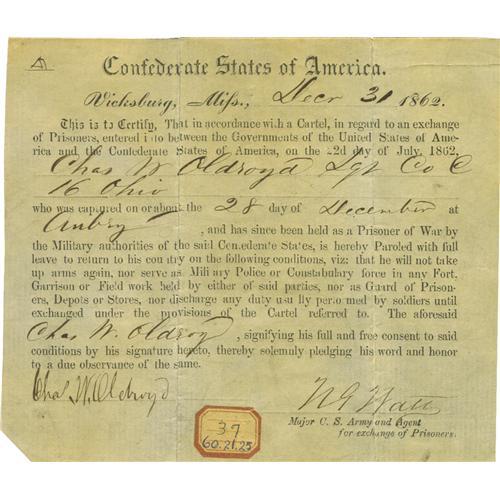 Confederate States of America.
Vicksburg, Miss., Decr 31 1862.
This is to Certify, That in accordance with a Cartel, in regard to an exchange
of Prisoners, entered into between the Governments of the United States of Ame-
rica and the Confederate States of America, on the 22d day of July, 1862,
Chas W Oldroyd Sgt Co C
16 Ohio
who was captured on or about the 28 day of December at
, and has since been held as a Prisoner of War by
the Military authorities of the said Confederate States, is hereby Paroled with full
leave to return to his country on the following conditions, viz: that he will not take
up arms again, nor serve as Military Police or Constabulary force in any Fort,
Garrison or Field work held by either of said parties, nor as Guard of Prison-
ers, Depots or Stores, nor discharge any duty usually performed by soldiers until
exchanged under the provisions of the Cartel referred to. The aforesaid
Chas W. Oldroyd, signifying his full and free consent to said
conditions by his signature hereto, thereby solemnly pledging his word and honor
to a due observance of the same.
Chas W. Oldroyd
N G Watts
Major C. S. Army and Agent
for exchange of Prisoners.
37
60.21.25